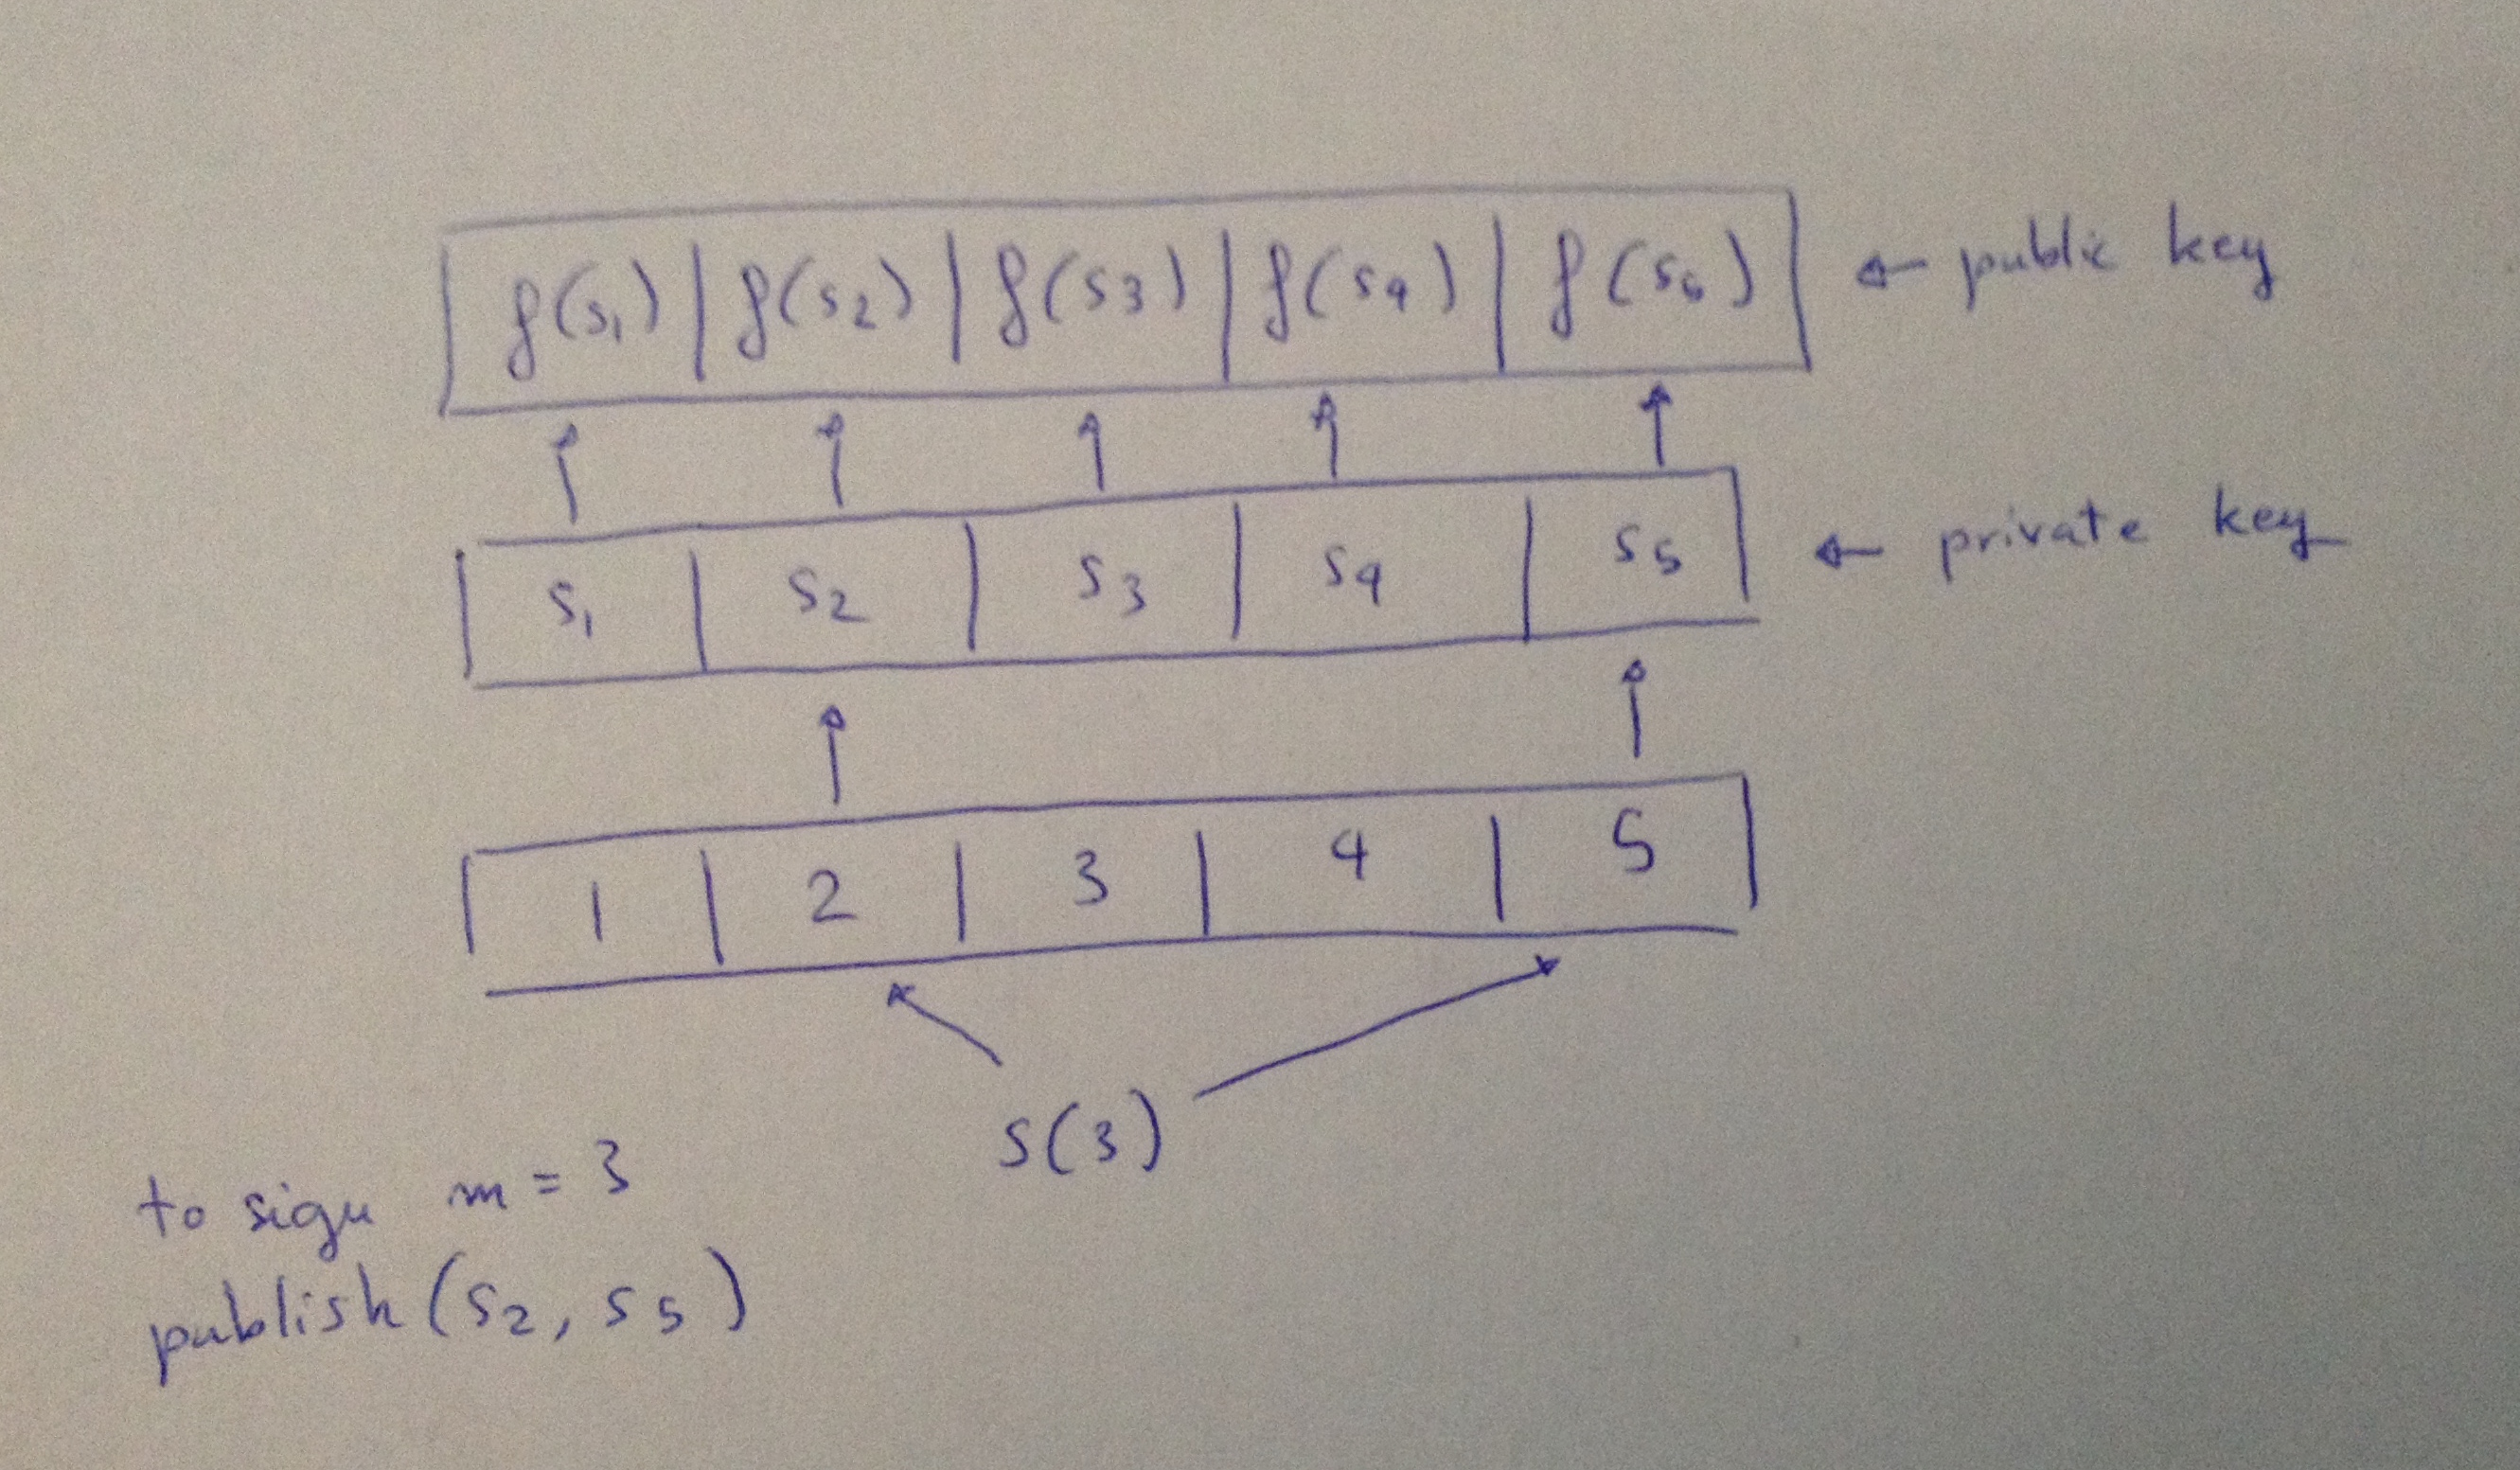 f(s₁) | f(s₂) | f(s₃) | f(s₄) | f(s₅) ← public key
s₁ | s₂ | s₃ | s₄ | s₅ ← private key
1 | 2 | 3 | 4 | 5
S(3)
to sign m = 3
publish (s₂, s₅)